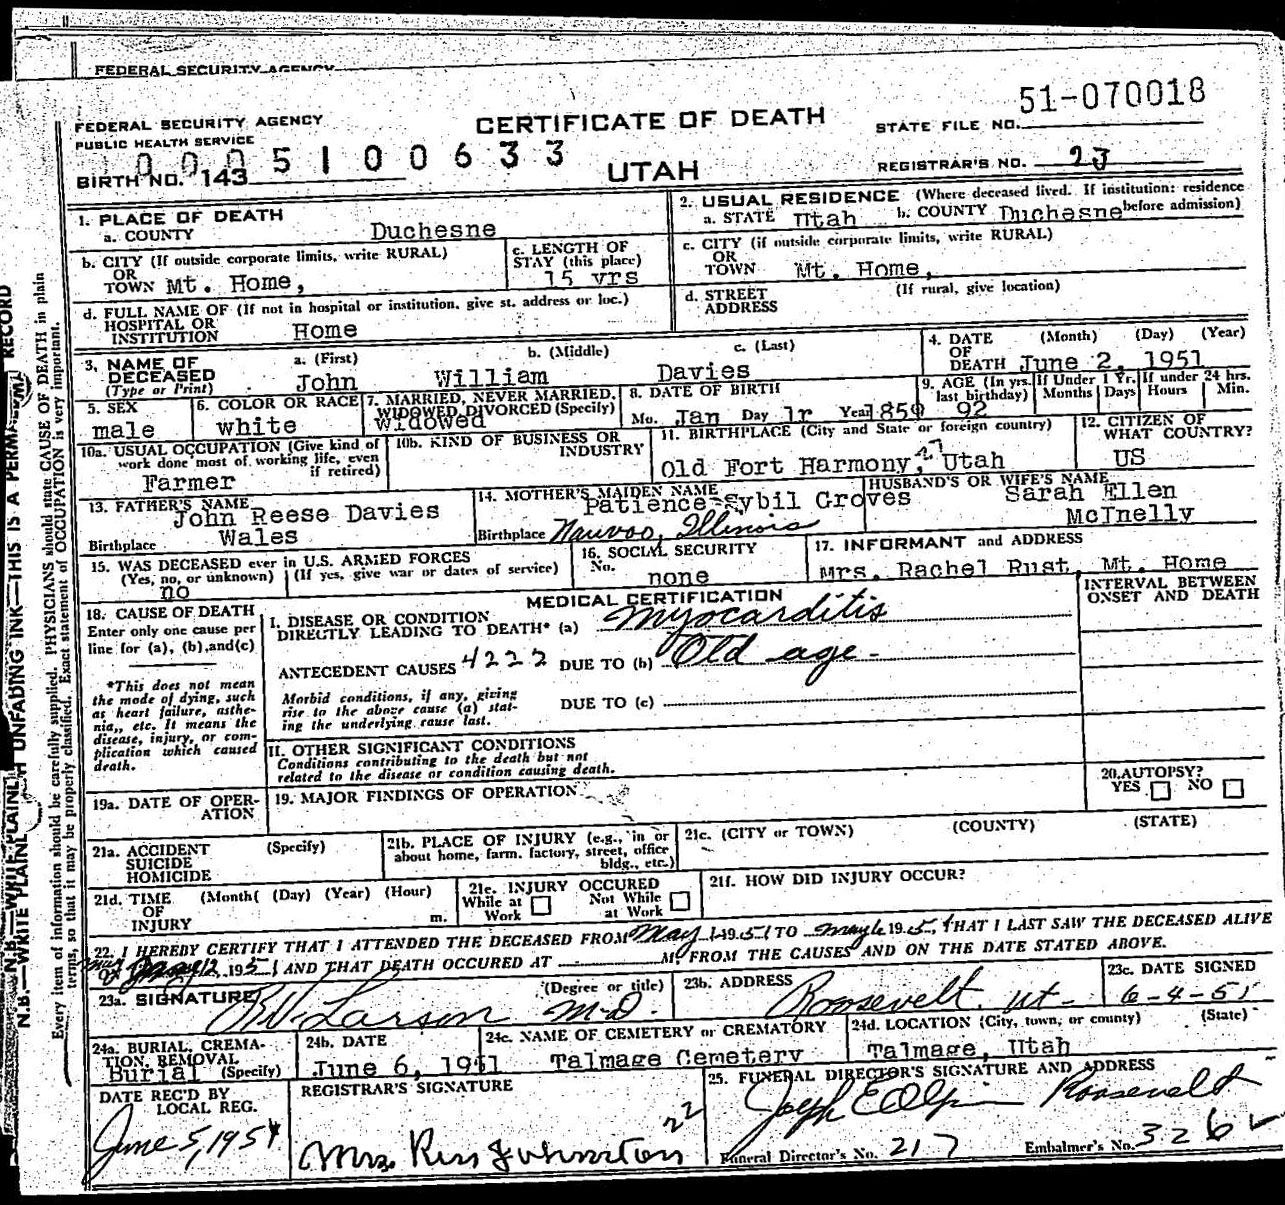 FEDERAL SECURITY AGENCY
51-070018
FEDERAL SECURITY AGENCY
PUBLIC HEALTH SERVICE
CERTIFICATE OF DEATH
STATE FILE NO.
0005100633
BIRTH NO. 143
UTAH
REGISTRAR'S NO. 23
1. PLACE OF DEATH
a. COUNTY Duchesne
2. USUAL RESIDENCE (Where deceased lived. If institution: residence before admission)
a. STATE Utah b. COUNTY Duchesne
b. CITY (If outside corporate limits, write RURAL)
OR
TOWN Mt. Home,
c. LENGTH OF
STAY (this place)
15 yrs
c. CITY (if outside corporate limits, write RURAL)
OR
TOWN Mt. Home,
d. FULL NAME OF (If not in hospital or institution, give st. address or loc.)
HOSPITAL OR
INSTITUTION Home
d. STREET (If rural, give location)
ADDRESS
3. NAME OF
DECEASED
(Type or Print)
a. (First) b. (Middle) c. (Last)
John William Davies
4. DATE (Month) (Day) (Year)
OF
DEATH June 2, 1951
5. SEX
male
6. COLOR OR RACE
white
7. MARRIED, NEVER MARRIED,
WIDOWED DIVORCED (Specify)
Widowed
8. DATE OF BIRTH
Mo. Jan Day Year 1859
9. AGE (In yrs.
last birthday)
92
If Under 1 Yr.
Months Days
If under 24 hrs.
Hours Min.
10a. USUAL OCCUPATION (Give kind of
work done most of working life, even
if retired)
Farmer
10b. KIND OF BUSINESS OR
INDUSTRY
11. BIRTHPLACE (City and State or foreign country)
Old Fort Harmony, 27 Utah
12. CITIZEN OF
WHAT COUNTRY?
US
13. FATHER'S NAME
John Reese Davies
Birthplace Wales
14. MOTHER'S MAIDEN NAME
Patience Sybil Groves
Birthplace Nauvoo, Illinois
HUSBAND'S OR WIFE'S NAME
Sarah Ellen
McInelly
15. WAS DECEASED ever in U.S. ARMED FORCES
(Yes, no, or unknown) (If yes, give war or dates of service)
no
16. SOCIAL SECURITY
No.
none
17. INFORMANT and ADDRESS
Mrs. Rachel Rust, Mt. Home
18. CAUSE OF DEATH
Enter only one cause per
line for (a), (b), and (c)
*This does not mean
the mode of dying, such
as heart failure, asthe-
nia,, etc. It means the
disease, injury, or com-
plication which caused
death.
MEDICAL CERTIFICATION
INTERVAL BETWEEN
ONSET AND DEATH
I. DISEASE OR CONDITION
DIRECTLY LEADING TO DEATH* (a) Myocarditis
ANTECEDENT CAUSES 4222 DUE TO (b) Old age -
Morbid conditions, if any, giving
rise to the above cause (a) stat-
ing the underlying cause last.
DUE TO (c)
II. OTHER SIGNIFICANT CONDITIONS
Conditions contributing to the death but not
related to the disease or condition causing death.
19a. DATE OF OPER-
ATION
19. MAJOR FINDINGS OF OPERATION
20. AUTOPSY?
YES NO
21a. ACCIDENT (Specify)
SUICIDE
HOMICIDE
21b. PLACE OF INJURY (e.g., in or
about home, farm, factory, street, office
bldg., etc.)
21c. (CITY or TOWN) (COUNTY) (STATE)
21d. TIME (Month( (Day) (Year) (Hour)
OF
INJURY m.
21e. INJURY OCCURED
While at Not While
Work at Work
21f. HOW DID INJURY OCCUR?
22. I HEREBY CERTIFY THAT I ATTENDED THE DECEASED FROM May 1 1951 TO May 16 1951, THAT I LAST SAW THE DECEASED ALIVE
ON 12, 1951 AND THAT DEATH OCCURED AT M. FROM THE CAUSES AND ON THE DATE STATED ABOVE.
23a. SIGNATURE (Degree or title)
RV Larson M.D.
23b. ADDRESS
Roosevelt, Ut -
23c. DATE SIGNED
6-4-51
24a. BURIAL, CREMA-
TION, REMOVAL
Burial (Specify)
24b. DATE
June 6, 1951
24c. NAME OF CEMETERY or CREMATORY
Talmage Cemetery
24d. LOCATION (City, town, or county) (State)
Talmage, Utah
DATE REC'D BY
LOCAL REG.
June 5, 1951
REGISTRAR'S SIGNATURE
22
Mrs. Johnston
25. FUNERAL DIRECTOR'S SIGNATURE AND ADDRESS
Joseph E Olpin Roosevelt
Funeral Director's No. 217 Embalmer's No. 326
N.B.—WRITE PLAINLY UNFADING INK—THIS IS A PERMA RECORD
Every item of information should be carefully supplied. PHYSICIANS should state CAUSE OF DEATH in plain
terms, so that it may be properly classified. Exact statement of OCCUPATION is very important.